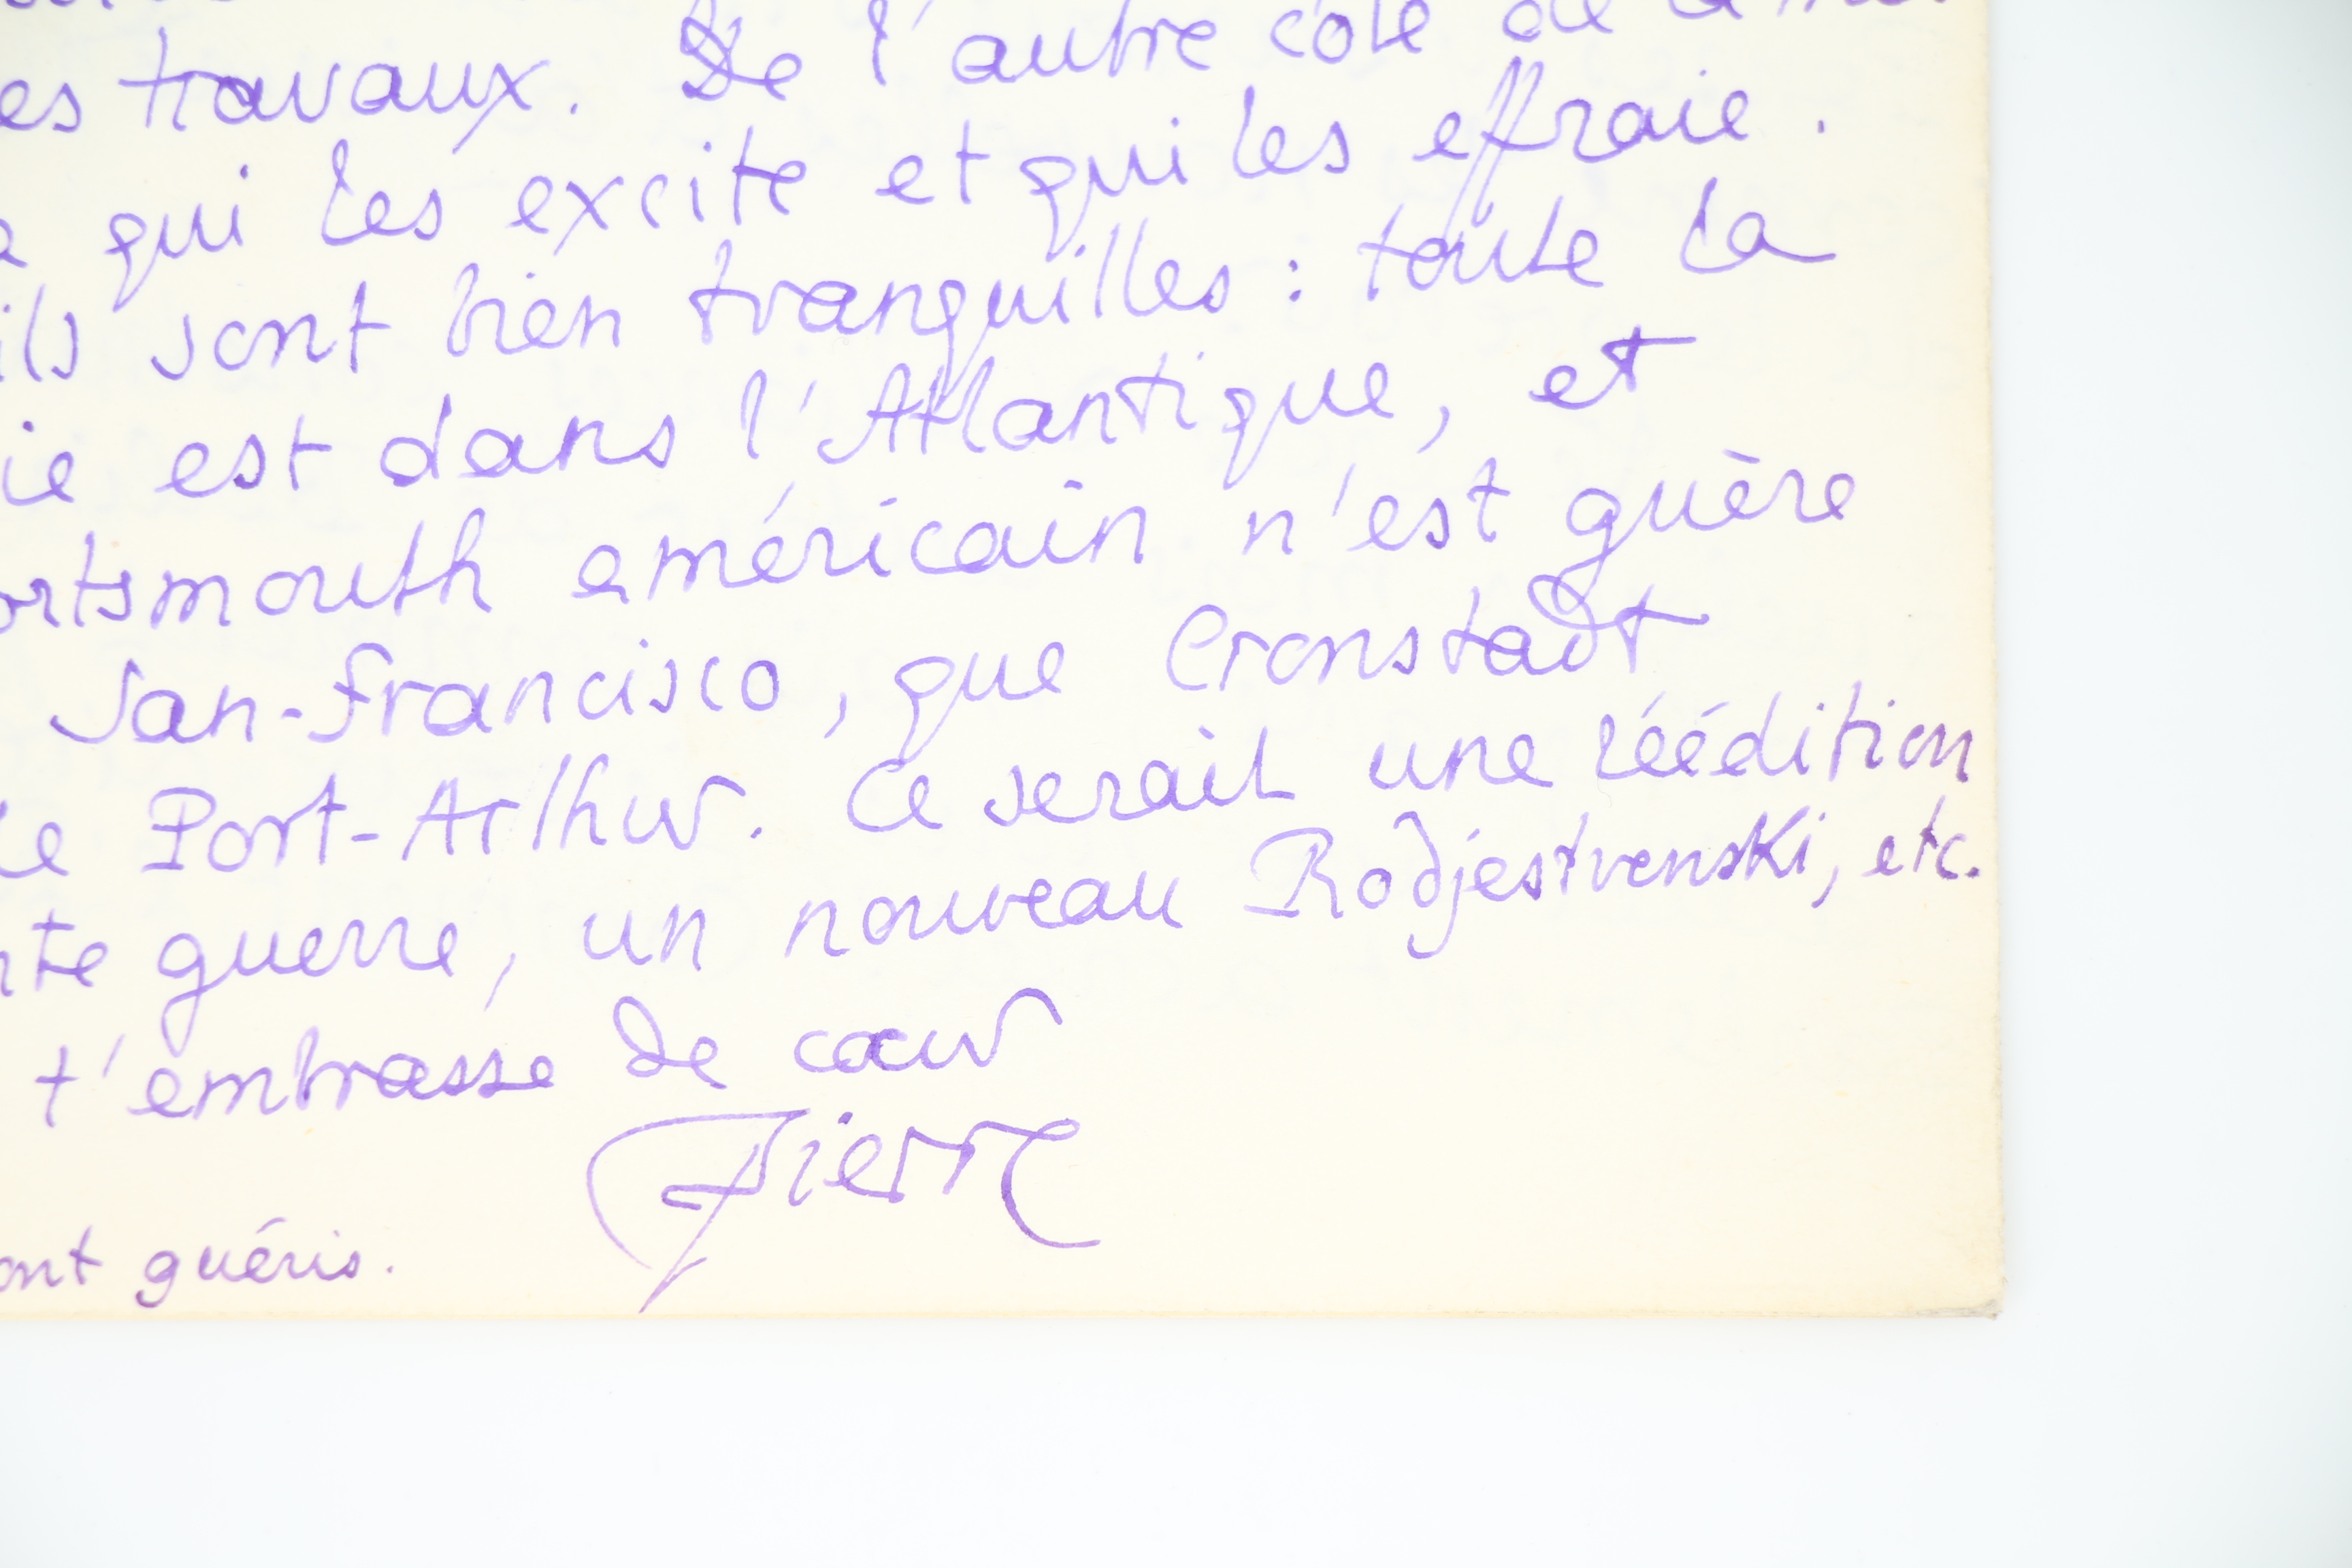 es travaux. De l'autre côté de
qui les excite et qui les effraie.
ils sont bien tranquilles : toute la
ie est dans l'Atlantique, et
ortsmouth américain n'est guère
San-Francisco, que Cronstadt
le Port-Arthur. Ce serait une réédition
nte guerre, un nouveau Rodjestvenski, etc.
t'embrasse de cœur
Pierre
ont guéris.